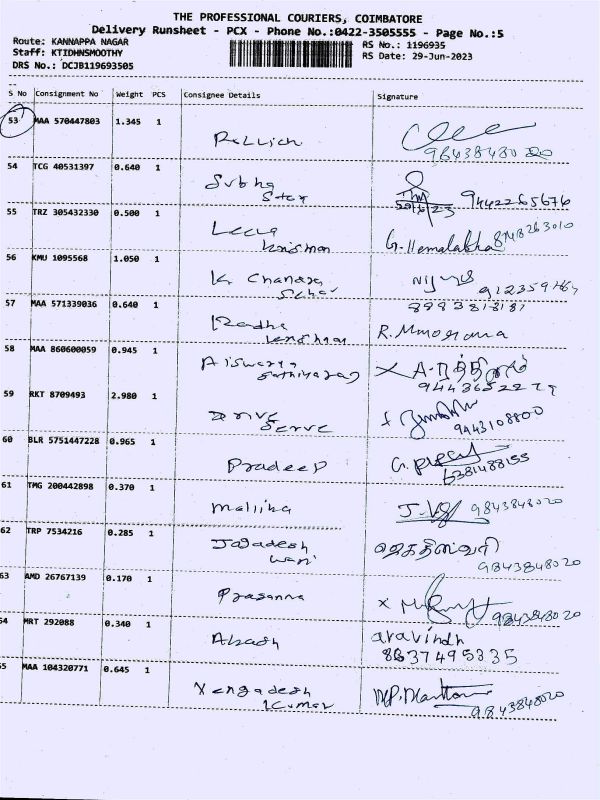 THE PROFESSIONAL COURIERS, COIMBATORE
Delivery Runsheet - PCX - Phone No.:0422-3505555 - Page No.:5
Route: KANNAPPA NAGAR
Staff: KTIDHNSMOOTHY
DRS No.: DCJB119693505
RS No.: 1196935
RS Date: 29-Jun-2023
S No Consignment No Weight PCS Consignee Details Signature
53 MAA 570447803 1.345 1
98438480 20
54 TCG 40531397 0.640 1 Subha 9442265676
55 TRZ 305432330 0.500 1 Leela G. Hemalatha 8748263010
Krisnan
56 KMU 1095568 1.050 1 K Chandra
Sekar
57 MAA 571339036 0.640 1 Radha R.
58 MAA 860600059 0.945 1 Aiswarya A.
Sathiyaraj
59 RKT 8709493 2.980 1 Drive
Serve 9443108800
60 BLR 5751447228 0.965 1 Pradeep G.
6381488155
61 TMG 200442898 0.370 1 Mallika 9843848020
62 TRP 7534216 0.285 1 Jagadesh ஜெகதீஸ்வரி
wari 9843848020
63 AMD 26767139 0.170 1 Prasanna 9843848020
64 MRT 292088 0.340 1 Akash aravindh
8637495335
65 MAA 104320771 0.645 1 Vengadesh
Kumar 9843848020